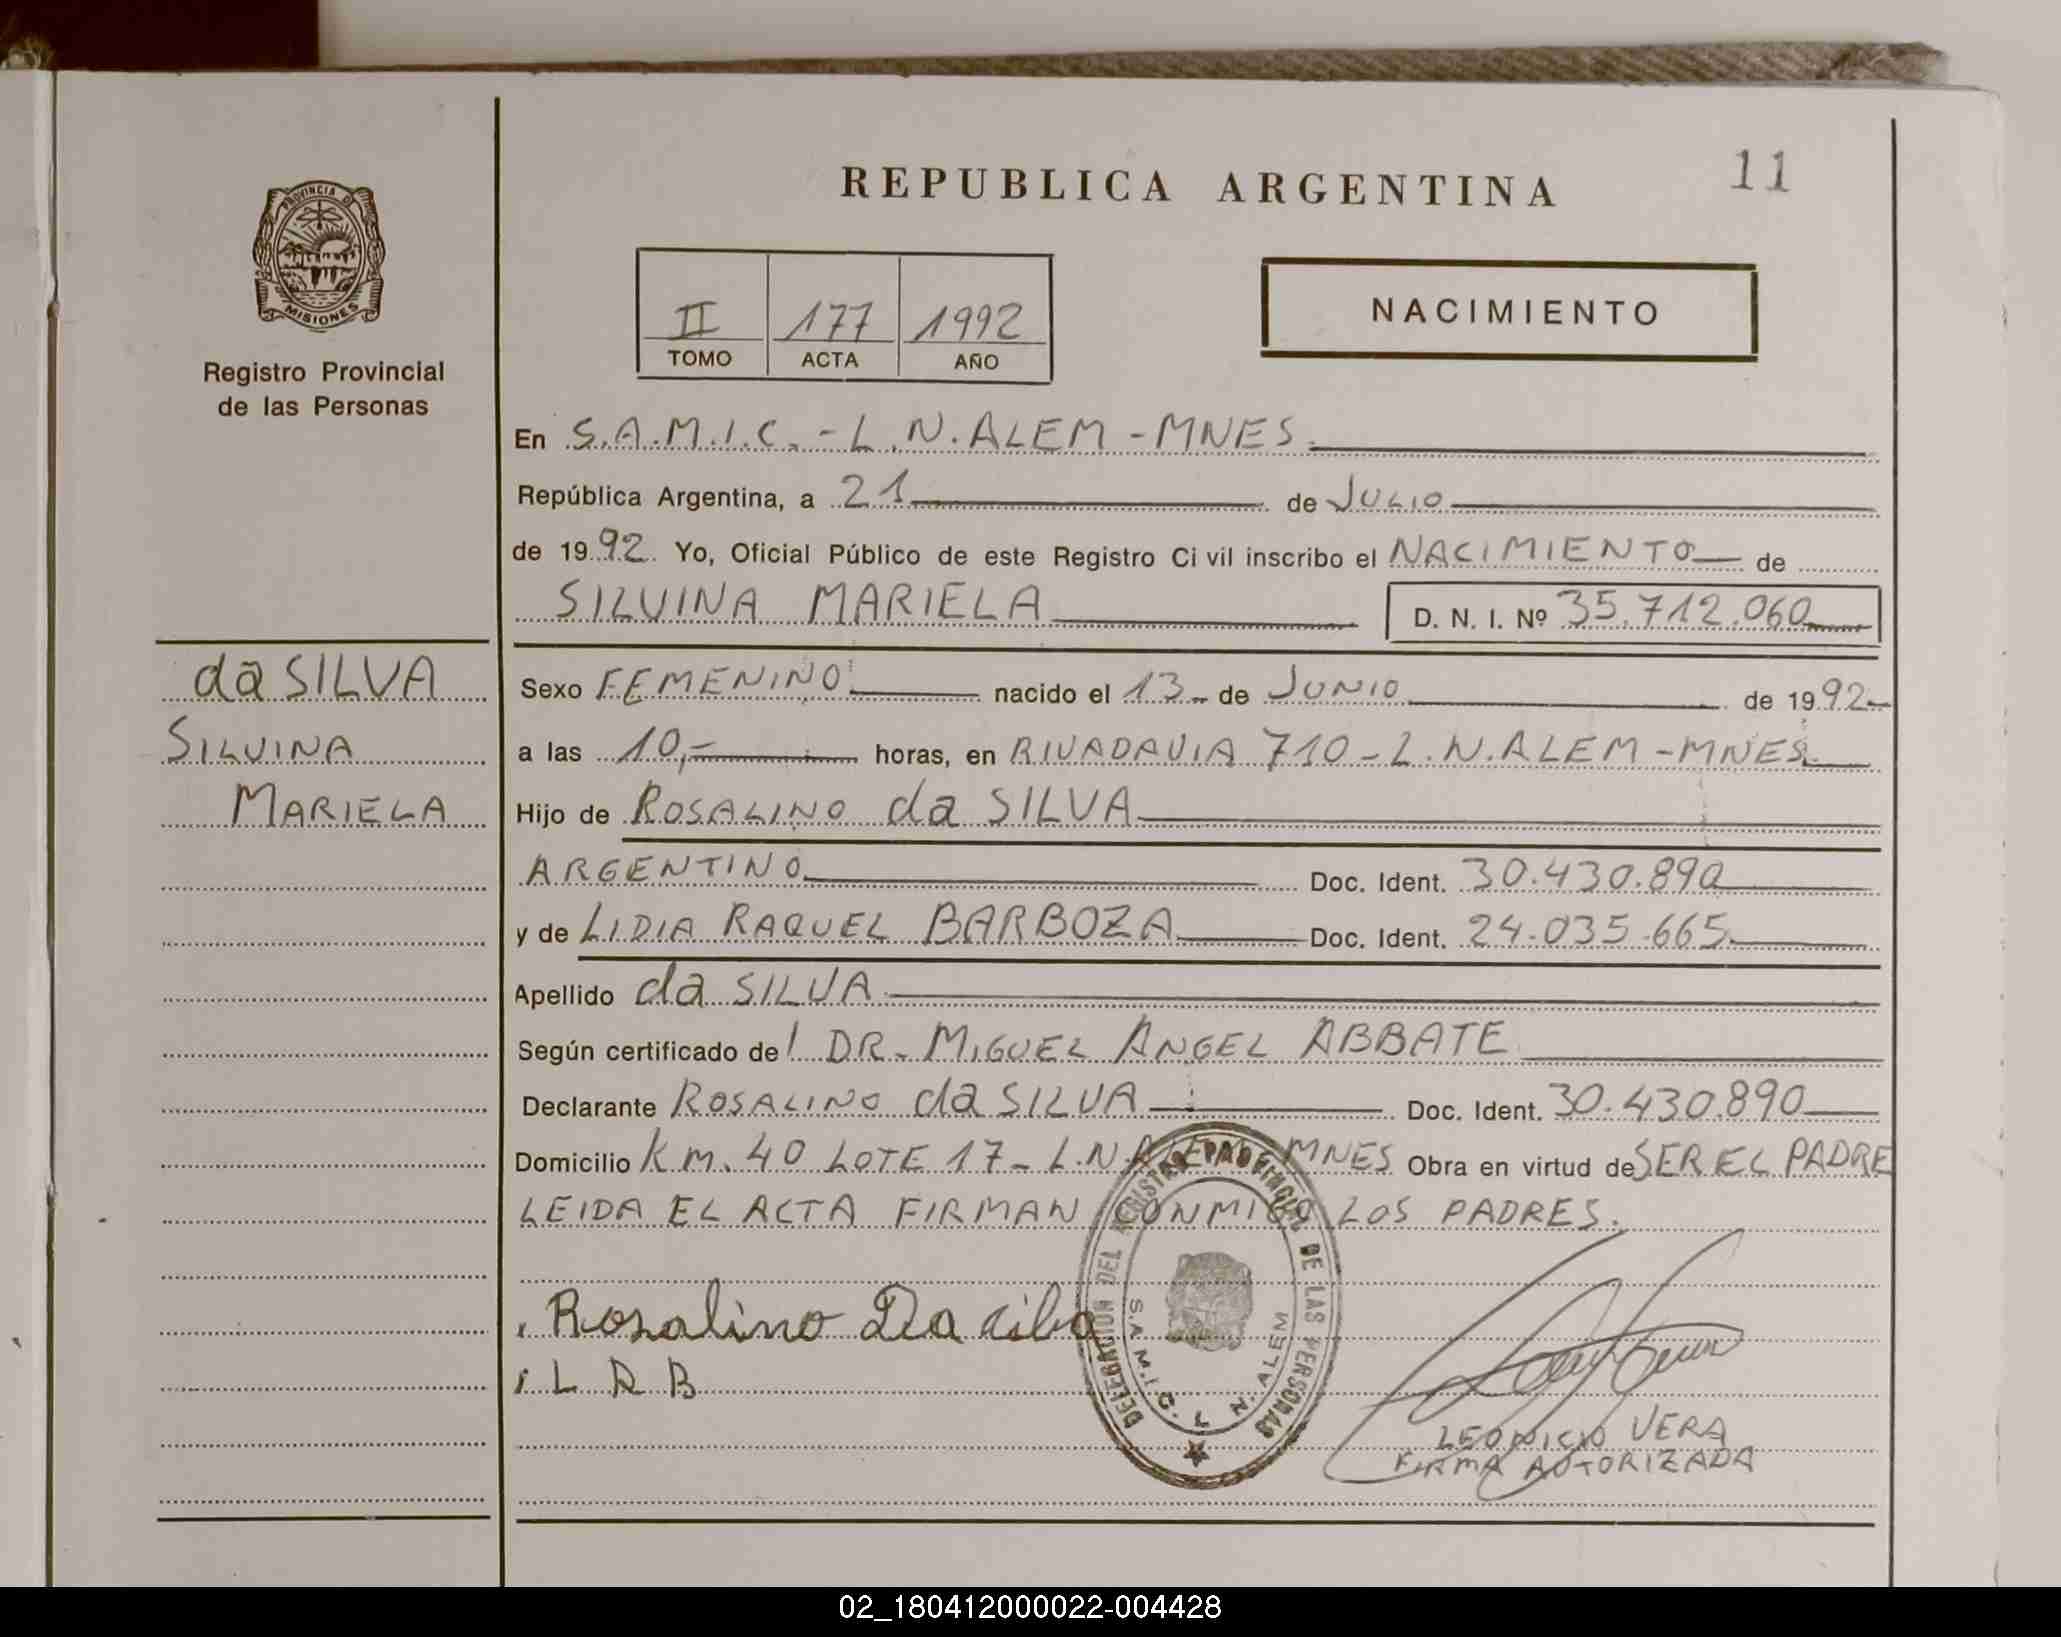 REPUBLICA ARGENTINA
11
PROVINCIA DE
MISIONES
Registro Provincial
de las Personas
II 177 1992
TOMO ACTA AÑO
NACIMIENTO
En S.A.M.I.C. - L.N. ALEM - MNES.
República Argentina, a 21 de JULIO
de 1992. Yo, Oficial Público de este Registro Civil inscribo el NACIMIENTO de
SILVINA MARIELA D. N. I. Nº 35.712.060
da SILVA
SILVINA
MARIELA
Sexo FEMENINO nacido el 13 de JUNIO de 1992
a las 10,- horas, en RIVADAVIA 710 - L.N. ALEM - MNES.
Hijo de ROSALINO da SILVA
ARGENTINO Doc. Ident. 30.430.890
y de LIDIA RAQUEL BARBOZA Doc. Ident. 24.035.665
Apellido da SILVA
Según certificado del DR. MIGUEL ANGEL ABBATE
Declarante ROSALINO da SILVA Doc. Ident. 30.430.890
Domicilio KM. 40 LOTE 17 - L.N. ALEM - MNES Obra en virtud de SER EL PADRE
LEIDA EL ACTA FIRMAN CONMIGO LOS PADRES.
Rosalino Da cilva
L R B
DELEGACION DEL REGISTRO PROVINCIAL DE LAS PERSONAS
S.A.M.I.C. L. N. ALEM
LEONICIO VERA
FIRMA AUTORIZADA
02_180412000022-004428